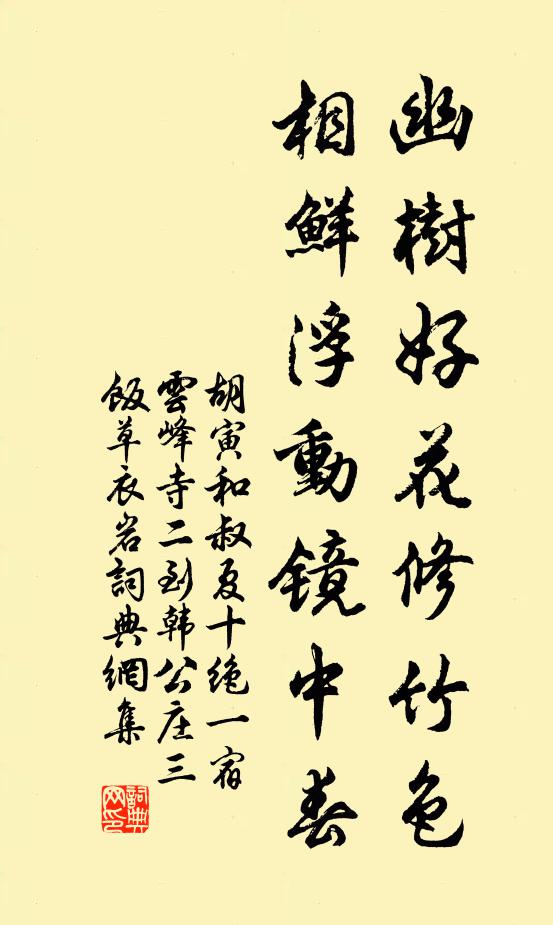 幽樹好花修竹色
相鮮浮動鏡中春
胡寅和叔夏十绝一宿
雲峰寺二到韩公庄三
飯草衣岩詞典網集
詞典
网印